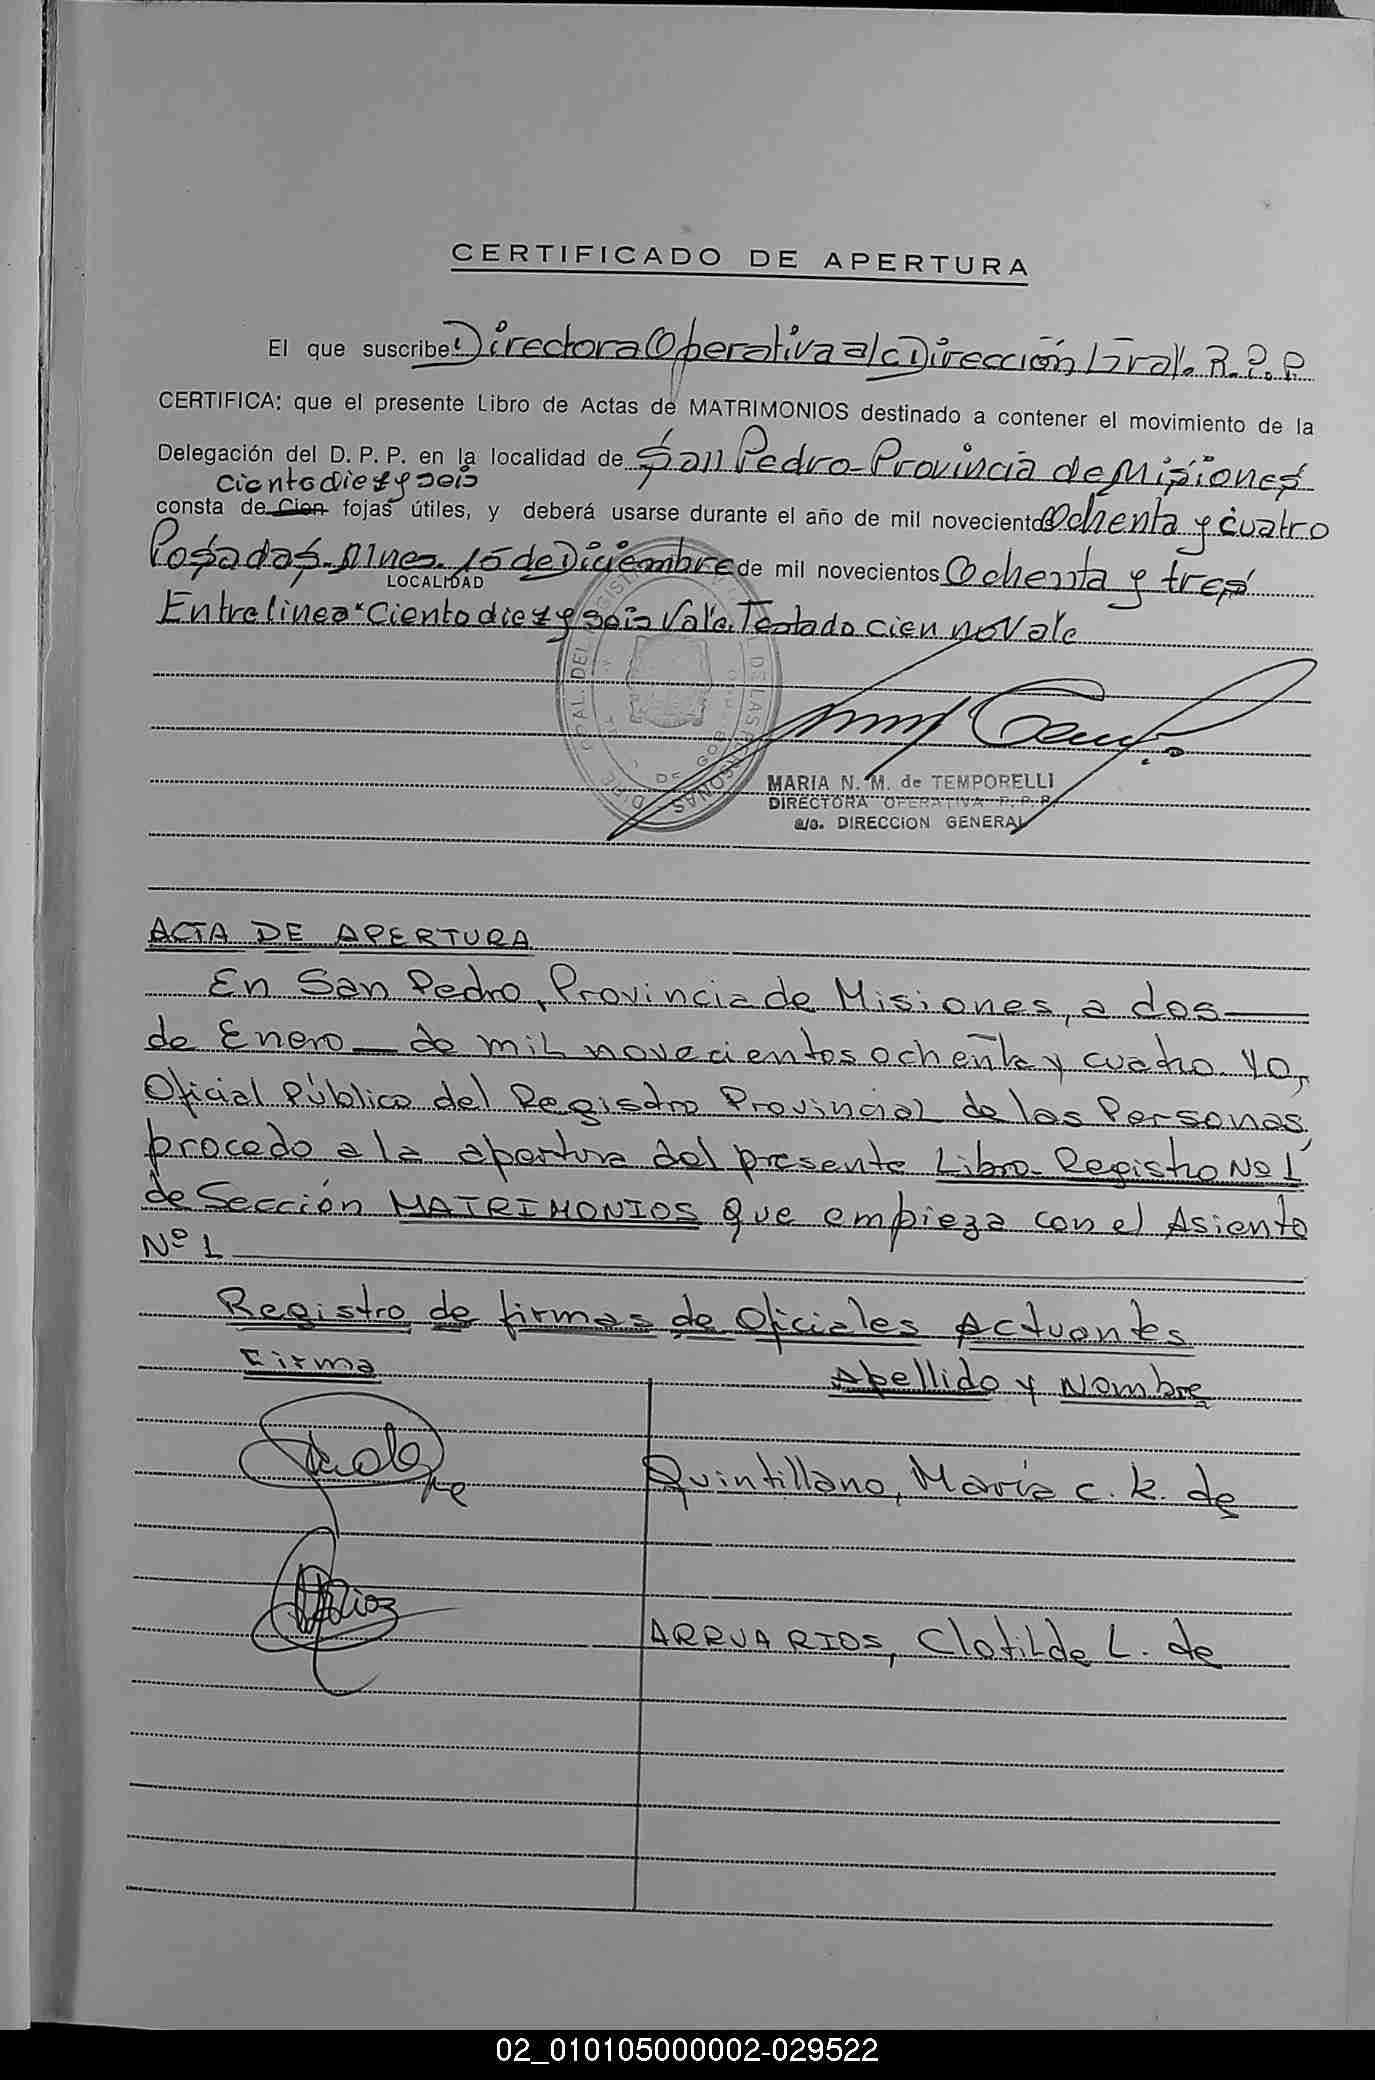 CERTIFICADO DE APERTURA
El que suscribe: Directora Operativa a/c Dirección Gral. R.P.P.
CERTIFICA: que el presente Libro de Actas de MATRIMONIOS destinado a contener el movimiento de la
Delegación del D. P. P. en la localidad de San Pedro - Provincia de Misiones
Ciento diez y seis
consta de Cien fojas útiles, y deberá usarse durante el año de mil novecientos Ochenta y cuatro
Posadas, Mnes. 15 de Diciembre de mil novecientos Ochenta y tres
LOCALIDAD
Entrelinea "Ciento diez y seis Vale. Testado cien no Vale
MARIA N. M. de TEMPORELLI
DIRECTORA OPERATIVA R.P.P.
a/c. DIRECCION GENERAL
ACTA DE APERTURA
En San Pedro, Provincia de Misiones, a dos
de Enero de mil novecientos ochenta y cuatro. Yo,
Oficial Público del Registro Provincial de las Personas,
procedo a la apertura del presente Libro-Registro No 1
de Sección MATRIMONIOS que empieza con el Asiento
Nº 1
Registro de firmas de Oficiales Actuantes
Firma Apellido y Nombre
Quintillano, María C. K. de
ARRUA RIOS, Clotilde L. de
02_010105000002-029522